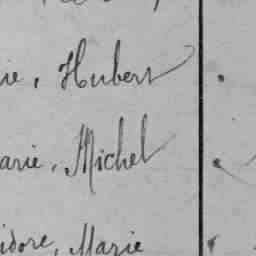 ie, Hubert
arie, Michel
idore, Marie